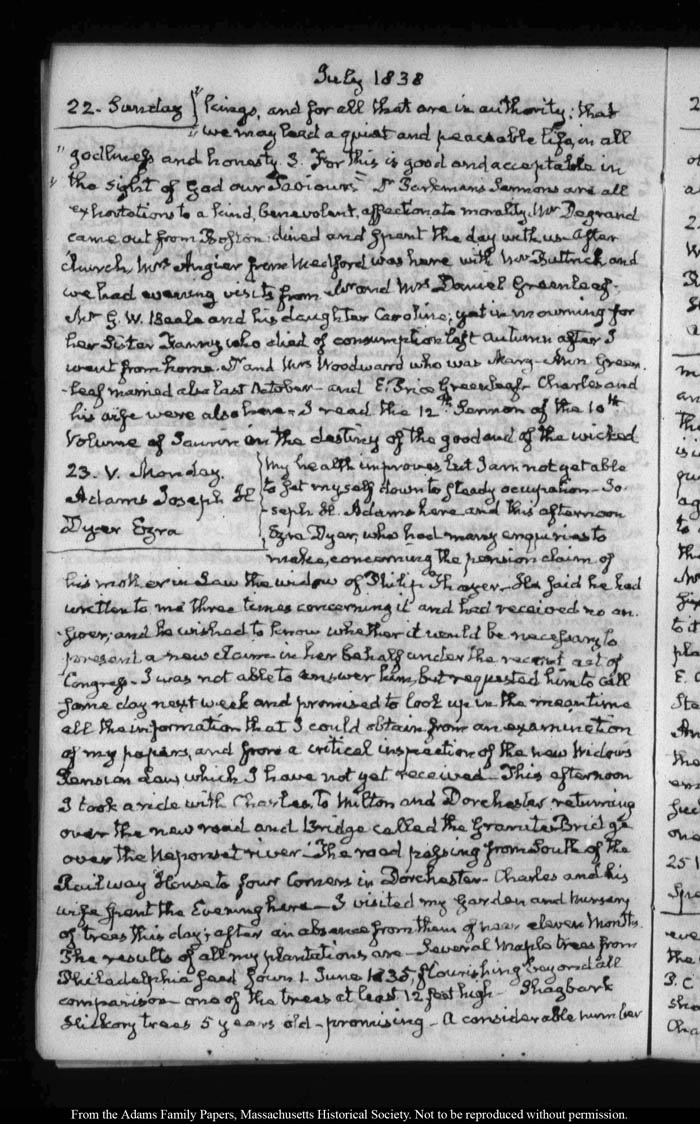 July 1838
22. Sunday } "kings, and for all that are in authority; that
"we may lead a quiet and peaceable life, in all
"godliness and honesty. 3. For this is good and acceptable in
"the sight of God our Saviour" Dr Parkmans Sermons are all
exhortations to a kind, benevolent, affectionate morality. Mr Degrand
came out from Boston: dined and spent the day with us. After
church, Mrs Angier from Medford was here with Mr Buttrick and
we had evening visits from Mr and Mrs Daniel Greenleaf.
Mr G. W. Beale and his daughter Caroline; yet in mourning for
her Sister Fanny who died of consumption last autumn after I
went from home. Dr and Mrs Woodward who was Mary-Ann Green-
-leaf married also last October - and E. Price Greenleaf. Charles and
his wife were also here. I read the 12th Sermon of the 10th
volume of Saurin on the destiny of the good and of the wicked
23. V. Monday.
Adams Joseph H.
Dyer Ezra
My health improves, but I am not yet able
to set myself down to steady occupation. Jo-
-seph H. Adams here and this afternoon
Ezra Dyer, who had many enquiries to
make, concerning the pension claim of
his mother in Law the widow of Philip Thayer. He said he had
written to me three times concerning it and had received no an-
-swer; and he wished to know whether it would be necessary to
present a new claim in her behalf under the recent act of
Congress. I was not able to answer him, but requested him to call
some day next week and promised to look up in the meantime
all the information that I could obtain from an examination
of my papers, and from a critical inspection of the new Widows
Pension Law, which I have not yet received. This afternoon
I took a ride with Charles, to Milton and Dorchester returning
over the new road and Bridge called the Granite Bridge
over the Neponset river. The road passing from South of the
Railway House to four Corners in Dorchester. Charles and his
wife spent the Evening here. I visited my garden and nursery
of trees this day; after an absence from them of near eleven months.
The results of all my plantations are. Several Maple trees from
Philadelphia seed sown 1 June 1835, flourishing beyond all
comparison - one of the trees at least 12 feet high. Shagbark
Hickory trees 5 years old - promising - A considerable number
25
From the Adams Family Papers, Massachusetts Historical Society. Not to be reproduced without permission.